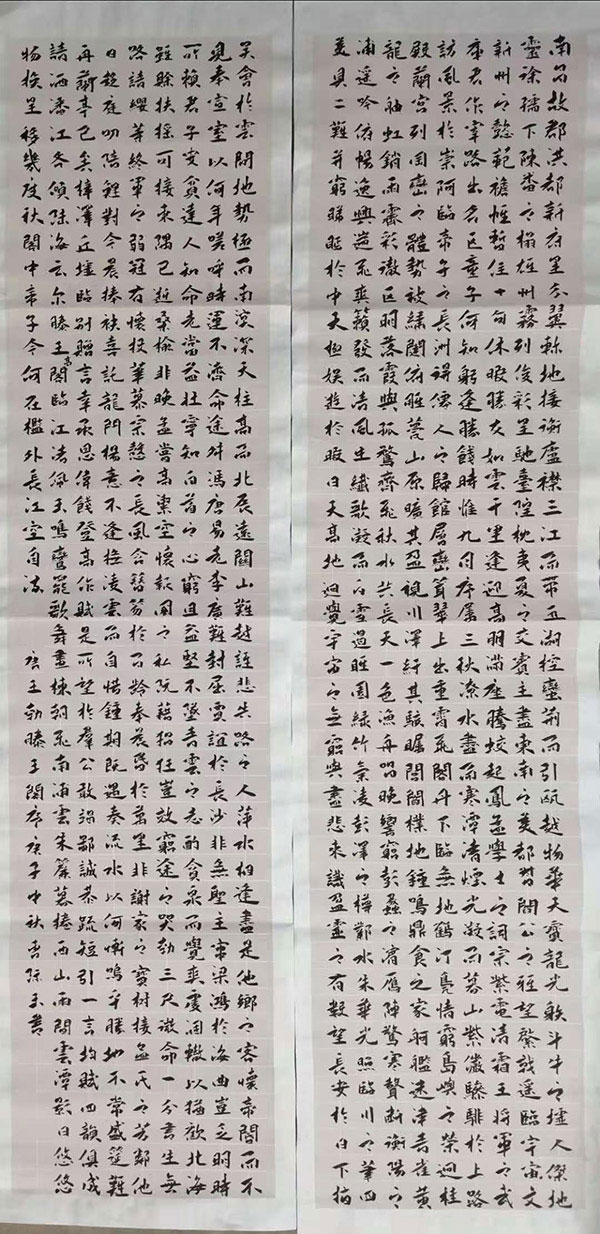 南昌故郡洪都新府星分翼軫地接衡廬襟三江而帶五湖控蠻荊而引甌越物華天寶龍光射斗牛之墟人傑地
靈徐孺下陳蕃之榻雄州霧列俊彩星馳臺隍枕夷夏之交賓主盡東南之美都督閻公之雅望棨戟遙臨宇文
新州之懿範襜帷暫住十旬休暇勝友如雲千里逢迎高朋滿座騰蛟起鳳孟學士之詞宗紫電清霜王將軍之武
庫君作宰路出名區童子何知躬逢勝餞時惟九月序屬三秋潦水盡而寒潭清煙光凝而暮山紫儼驂騑於上路
訪風景於崇阿臨帝子之長洲得僊人之歸館層巒聳翠上出重霄飛閣丹下臨無地鶴汀鳧渚窮島嶼之縈迴桂
殿蘭宮列岡巒之體勢披繡闥俯雕甍山原曠其盈視川澤紆其駭矚閭閻撲地鐘鳴鼎食之家舸艦迷津青雀黃
龍之舳虹銷雨霽彩徹區明落霞與孤鶩齊飛秋水共長天一色漁舟唱晚響窮彭蠡之濱雁陣驚寒聲斷衡陽之
浦遙吟俯暢逸興遄飛爽籟發而清風生纖歌凝而白雲過睢園綠竹氣凌彭澤之樽鄴水朱華光照臨川之筆四
美具二難并窮睇眄於中天極娛遊於暇日天高地迥覺宇宙之無窮興盡悲來識盈虛之有數望長安於日下指
吳會於雲間地勢極而南溟深天柱高而北辰遠關山難越誰悲失路之人萍水相逢盡是他鄉之客懷帝閽而不
見奉宣室以何年嗟乎時運不濟命途舛馮唐易老李廣難封屈賈誼於長沙非無聖主竄梁鴻於海曲豈乏明時
所賴君子安貧達人知命老當益壯寧知白首之心窮且益堅不墜青雲之志酌貪泉而覺爽處涸轍以猶歡北海
雖賒扶搖可接東隅已逝桑榆非晚孟嘗高潔空懷報國之私阮籍猖狂豈效窮途之哭勃三尺微命一介書生無
路請纓等終軍之弱冠有懷投筆慕宗愨之長風舍簪笏於百齡奉晨昏於萬里非謝家之寶樹接孟氏之芳鄰他
日趨庭叨陪鯉對今晨捧袂喜託龍門楊意不逢撫凌雲而自惜鍾期既遇奏流水以何慚嗚乎勝地不常盛筵難
再蘭亭已矣梓澤丘墟臨別贈言幸承恩偉餞登高作賦是所望於羣公敢竭鄙誠恭疏短引一言均賦四韻俱成
請洒潘江各傾陸海云尔滕王高閣臨江渚佩玉鳴鸞罷歌舞畫棟朝飛南浦雲朱簾暮捲西山雨閒雲潭影日悠悠
物換星移幾度秋閣中帝子今何在檻外長江空自流 唐王勃滕王閣序庚子中秋